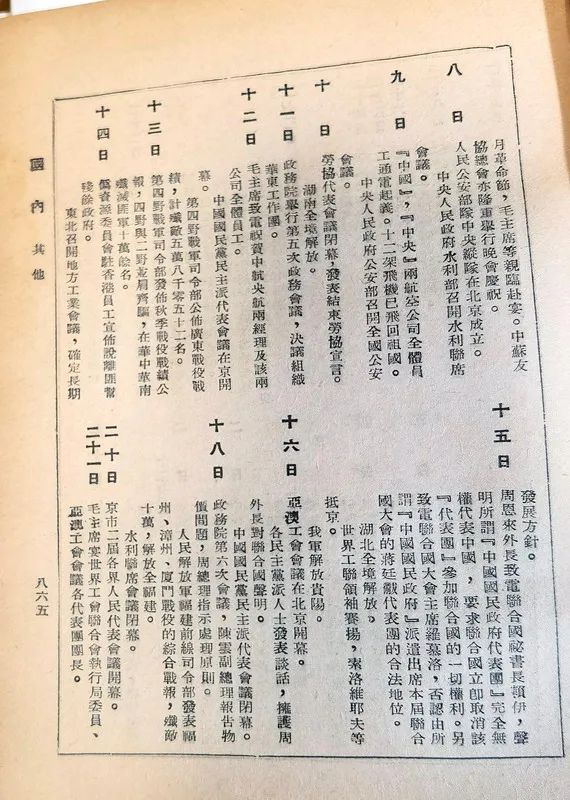 月革命節，毛主席等親臨赴宴。中蘇友
協總會亦隆重舉行晚會慶祝。
八日
人民公安部隊中央縱隊在北京成立。
中央人民政府水利部召開水利聯席
會議。
九日
『中國』，『中央』兩航空公司全體員
工通電起義。十二架飛機已飛回祖國。
中央人民政府公安部召開全國公安
會議。
十日
勞協代表會議閉幕，發表結束勞協宣言。
湖南全境解放。
十一日
政務院舉行第五次政務會議，決議組織
華東工作團。
十二日
毛主席致電祝賀中航央航兩經理及該兩
公司全體員工。
中國國民黨民主派代表會議在京開
幕。
第四野戰軍司令部公佈廣東戰役戰
績，計殲敵五萬八千零五十二名。
十三日
第四野戰軍司令部發佈秋季戰役戰績公
報，四野與二野並肩齊驅，在華中華南
殲滅匪軍十萬餘名。
十四日
僞資源委員會駐香港員工宣佈說離匪幫
殘餘政府。
東北召開地方工業會議，確定長期
發展方針。
十五日
周恩來外長致電聯合國祕書長頼伊，聲
明所謂『中國國民政府代表團』完全無
權代表中國，要求聯合國立卽取消該
『代表團』參加聯合國的一切權利。另
致電聯合國大會主席羅慕洛，否認由所
謂『中國國民政府』派遣出席本屆聯合
國大會的蔣廷黻代表團的合法地位。
湖北全境解放。
世界工聯領袖賽揚，索洛維耶夫等
抵京。
我軍解放貴陽。
十六日
亞澳工會會議在北京開幕。
各民主黨派人士發表談話，擁護周
外長對聯合國聲明。
中國國民黨民主派代表會議閉幕。
十八日
政務院第六次會議，陳雲副總理報告物
價問題，周總理指示處理原則。
人民解放軍福建前線司令部發表福
州、漳州、厦門戰役的綜合戰報，殲敵
十萬，解放全福建。
水利聯席會議閉幕。
二十日
京市二屆各界人民代表會議開幕。
二十一日
毛主席宴世界工會聯合會執行局委員、
亞澳工會會議各代表團團長。
國內 其他
八六五